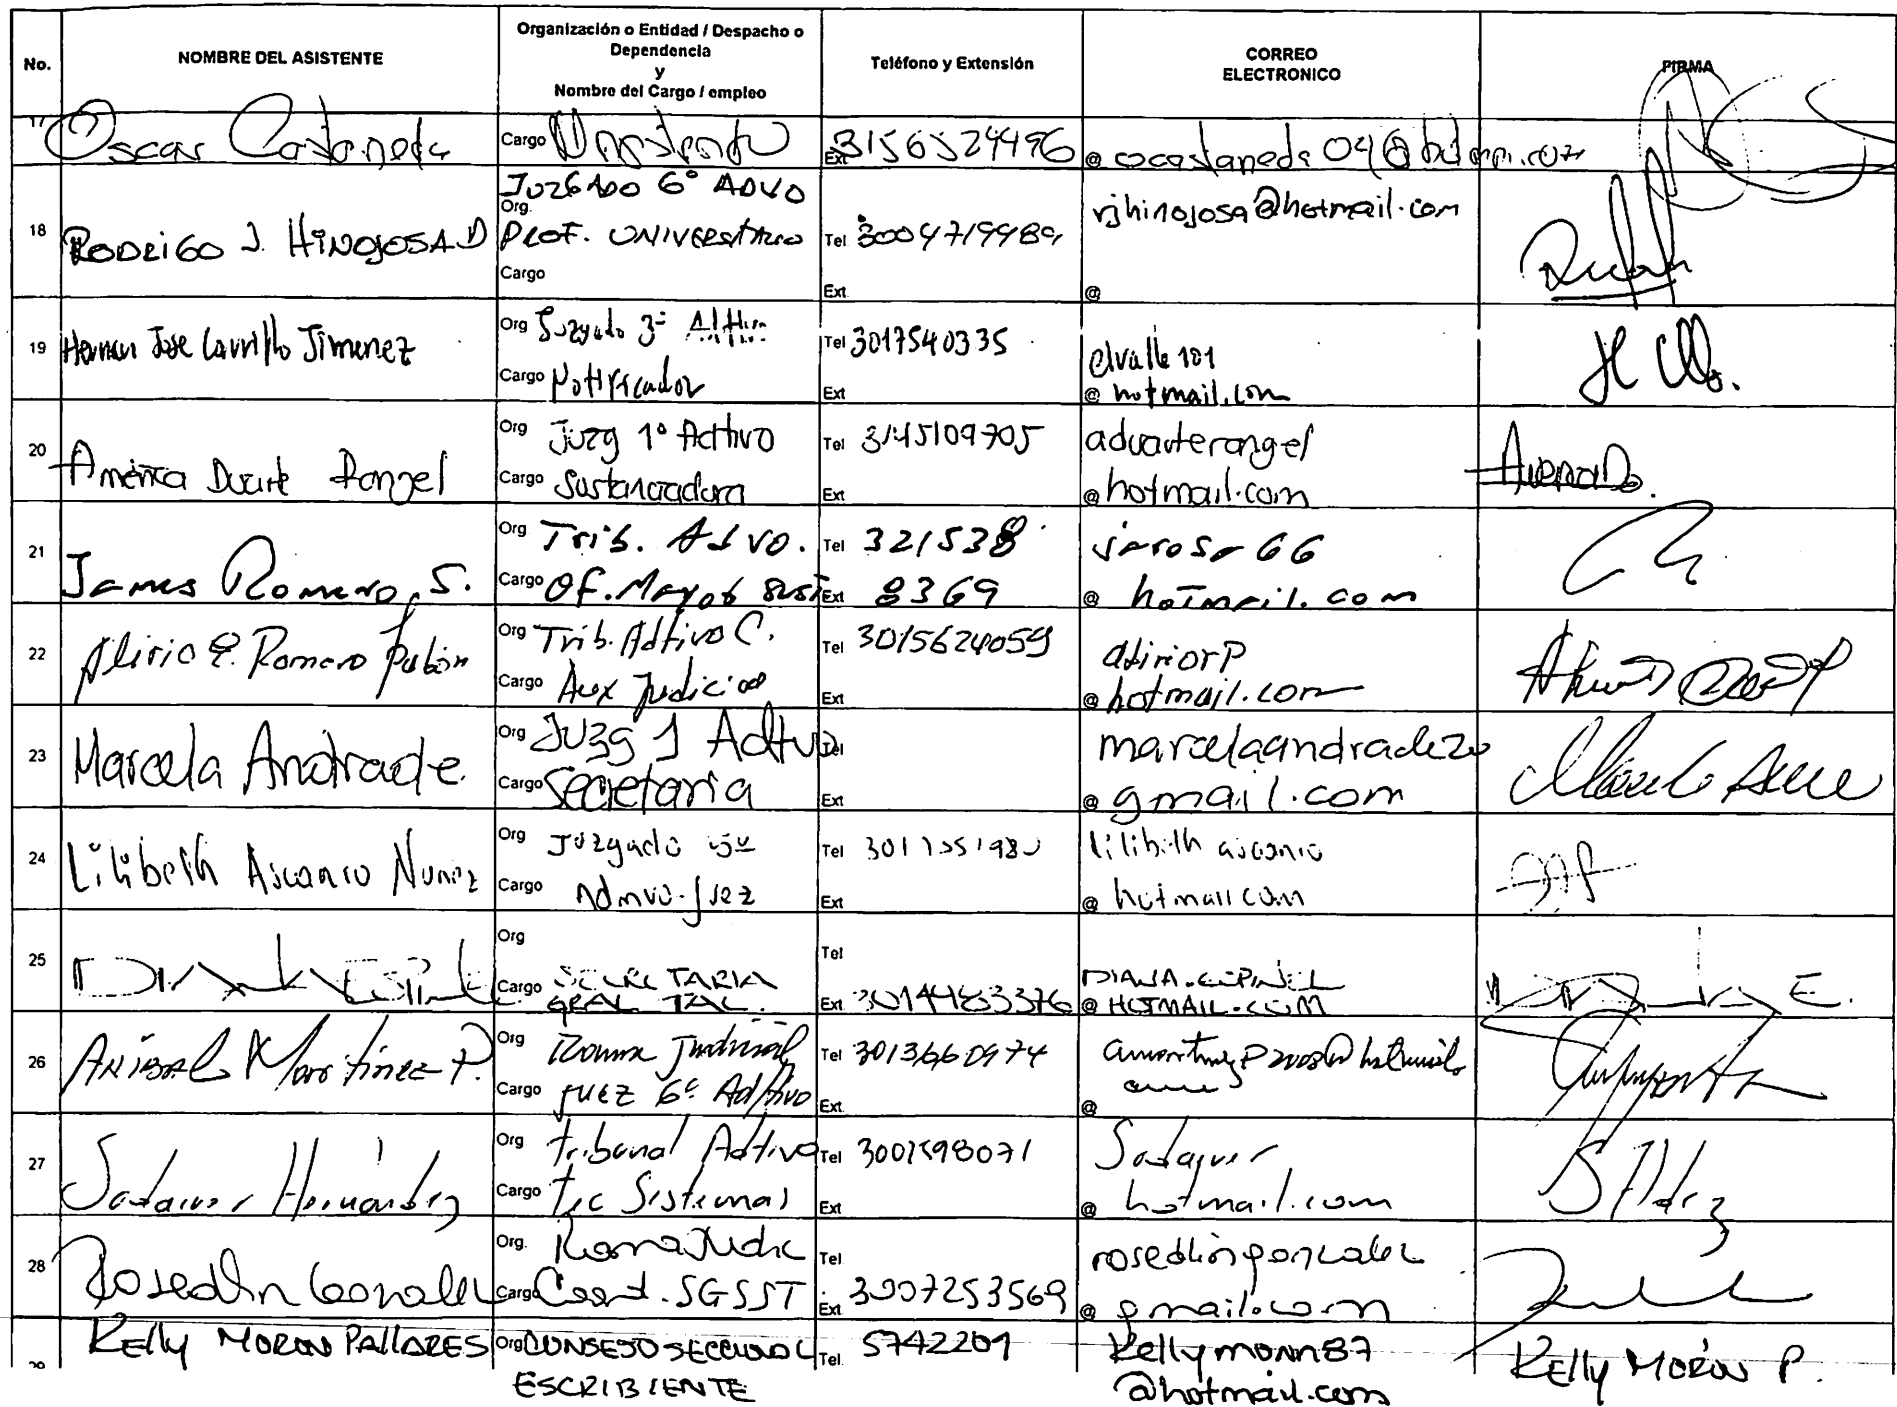 No.
NOMBRE DEL ASISTENTE
Organización o Entidad / Despacho o
Dependencia
y
Nombre del Cargo / empleo
Teléfono y Extensión
CORREO
ELECTRONICO
FIRMA
17
Oscar Castaneda
Cargo
Ext
@
18
RODRIGO J. HINOJOSA D
JUZGADO 6° ADVO
Org.
PROF. UNIVERSITARIO
Cargo
Tel 3004719989
Ext
rjhinojosa@hotmail.com
@
19
Hernan Jose Carrillo Jimenez
Org Juzgado 3°
Cargo Notificador
Tel 3017540335
Ext
elvalle101
@ hotmail.com
20
América Duarte Rangel
Org Juzg 1° Adtivo
Cargo Sustanciadora
Tel 3145109705
Ext
aduarterangel
@ hotmail.com
21
James Romero S.
Org Trib. Advo.
Cargo Of. Mayor sust
Tel 321538
Ext 8369
jarosa66
@ hotmail.com
22
Alirio E. Romero Pabón
Org Trib. Adtivo C.
Cargo Aux Judicial
Tel 3015624059
aliriorp
@ hotmail.com
23
Marcela Andrade
Org Juzg 1 Adtvo
Cargo Secretaria
Tel
Ext
marcelaandrade20
@ gmail.com
24
Lilibeth Ascanio Nuñez
Org Juzgado
Cargo Admvo. Juez
Tel
Ext
lilibeth ascanio
@ hotmail com
25
Org
Cargo SECRETARIA
GRAL TAC.
Tel
Ext 3014483376
DIANA.ESPINEL
@ HOTMAIL.COM
E.
26
Anibal Martínez P.
Org Rama Judicial
Cargo Juez 6° Adtivo
Tel 3013660974
Ext.
@
27
Sadaguer Hernández
Org tribunal Adtivo
Cargo Tec Sistemas
Tel 3002598071
Ext
Sadaguer
@ hotmail.com
28
Rosedlin Gonzalez
Org. Rama Judic
Cargo Coord. SGSST
Tel
Ext 3007253569
rosedlingonzalez
@ gmail.com
29
Kelly MORÓN PALLARES
Org CONSEJO SECCIONAL
ESCRIBIENTE
Tel. 5742201
Kellymoron87
@hotmail.com
KELLY MORÓN P.